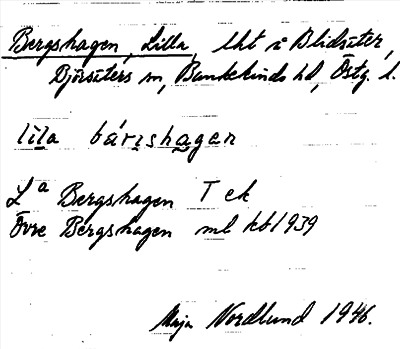 Bergshagen, Lilla, lht i Blidsäter,
Djörsäters sn, Bankekinds hd, Östg. l.
lila bárishagen
La Bergshagen T ek
Övre Bergshagen ml kb 1939
Maja Nordlund 1946.